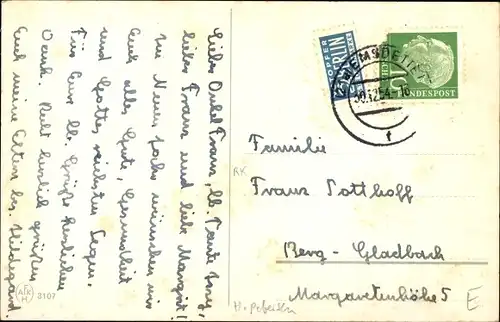 Lieber Onkel Franz, lb. Tante
lieber Franz und liebe Margret!
Im Neuen Jahre wünschen wir
Euch alles Gute, Gesundheit
und Gottes reichsten Segen.
Für Eure lb. Grüße herzlichen
Dank. Recht herzlich grüßen
Euch meine Eltern bes. Hildegard.
AKH 3107
NOTOPFER
BERLIN
EMSDETTEN
30.12.54.
t
BUNDESPOST
Familie
Franz Potthoff
Berg.-Gladbach
Margaretenhöhe 5
E